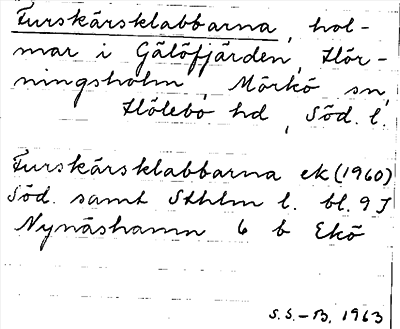 Furskärsklabbarna, hol-
mar i Gälöfjärden, Hör-
ningsholm, Mörkö sn,
Hölebo hd, Söd. l.
Furskärsklabbarna ek (1960)
Söd. samt Sthlm l. bl. 9 J
Nynäshamn 6 b Ekö
S.S.-B. 1963